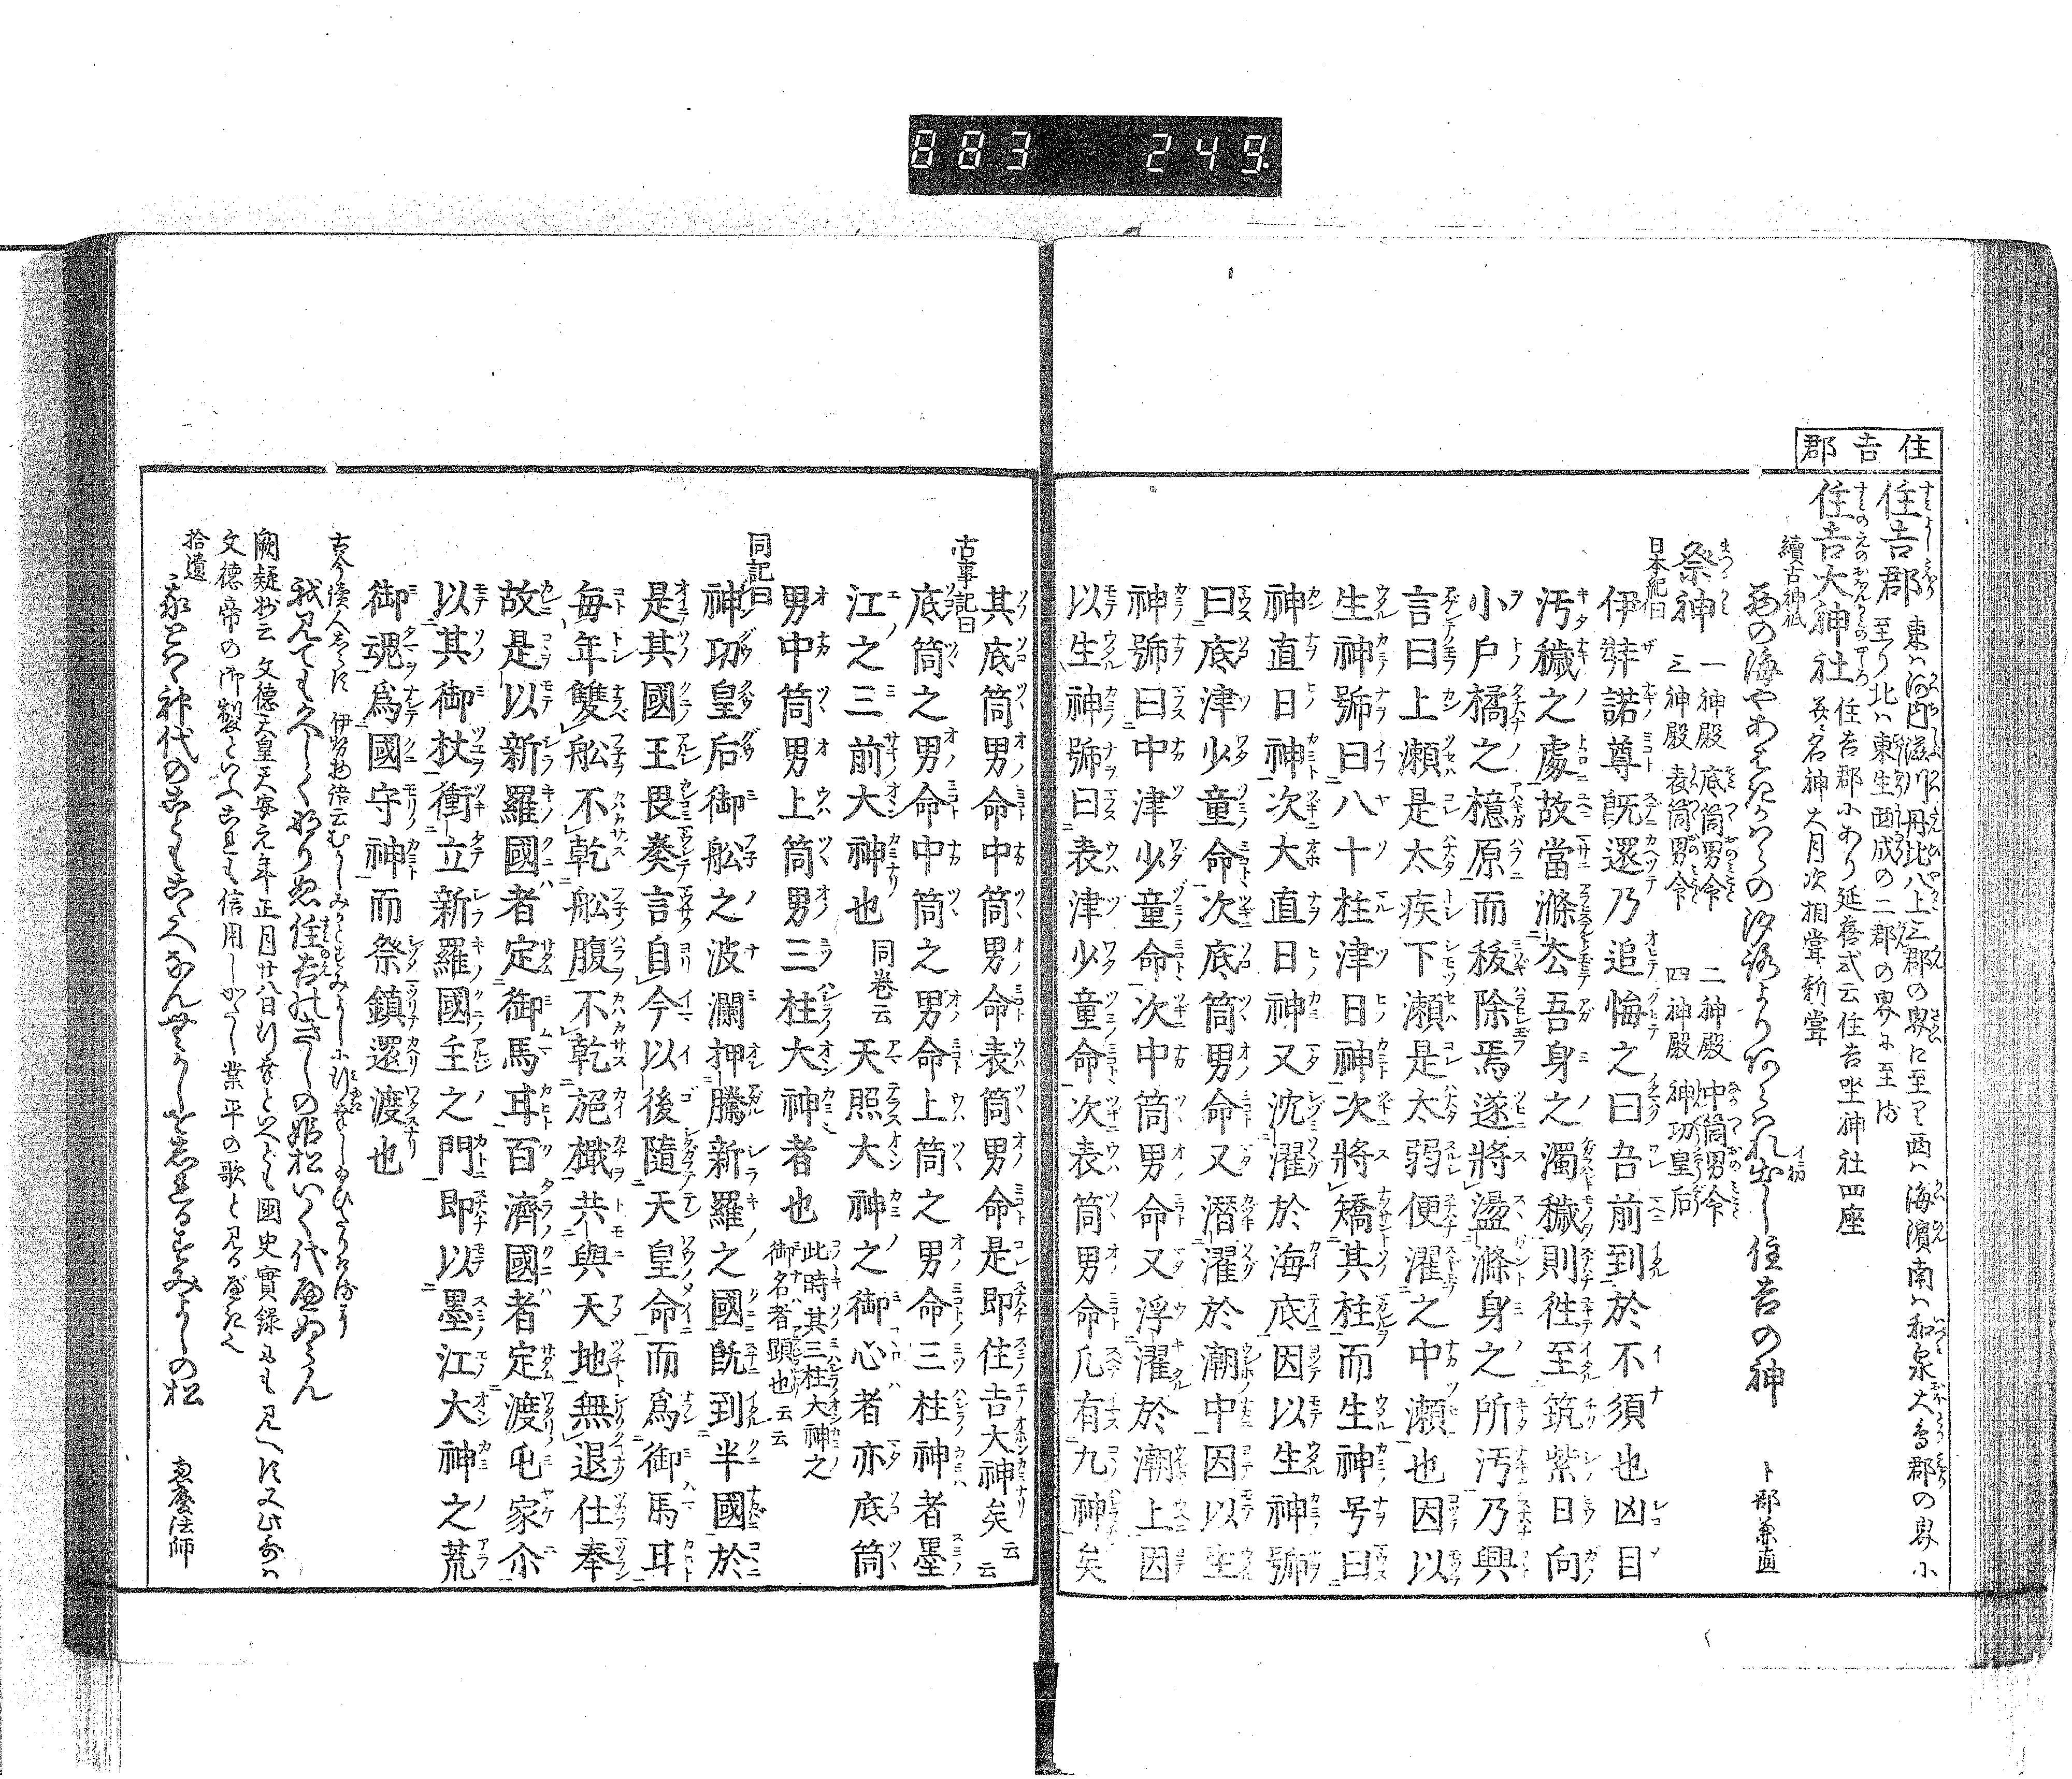 883 249
住吉郡
住吉郡 東ハ河内滋川丹比八上三郡の界に至り西ハ海濱南ハ和泉大鳥郡の界に
至り北ハ東生西成の二郡の界に至る
住吉大神社 住吉郡にあり延喜式云住吉坐神社四座
並名神大月次相嘗新嘗
續古神祇
西の海やあはきかはらの汐路よりあらはれ出し住吉の神 卜部兼直
祭神 一神殿 底筒男命 二神殿 中筒男命
三神殿 表筒男命 四神殿 神功皇后
日本紀曰
伊弉諾尊既還乃追悔之曰吾前到於不須也凶目
汚穢之處故當滌去吾身之濁穢則往至筑紫日向
小戸橘之檍原而秡除焉遂將盪滌身之所汚乃興
言曰上瀬是太疾下瀬是太弱便濯之中瀬也因以
生神號曰八十柱津日神次將矯其柱而生神号曰
神直日神次大直日神又沈濯於海底因以生神號
曰底津少童命次底筒男命又潛濯於潮中因以生
神號曰中津少童命次中筒男命又浮濯於潮上因
以生神號曰表津少童命次表筒男命凡有九神矣
其底筒男命中筒男命表筒男命是即住吉大神矣云云
古事記曰
底筒之男命中筒之男命上筒之男命三柱神者墨
江之三前大神也 同巻云 天照大神之御心者亦底筒
男中筒男上筒男三柱大神者也 此時其三柱大神之
御名者顕也云云
同記曰
神功皇后御舩之波瀾押騰新羅之國既到半國於
是其國王畏奏言自今以後隨天皇命而爲御馬耳
毎年雙舩不乾舩腹不乾𦨖檝共與天地無退仕奉
故是以新羅國者定御馬耳百濟國者定渡屯家尒
以其御杖衝立新羅國主之門即以墨江大神之荒
御魂爲國守神而祭鎮還渡也
古今 讀人しらす 伊勢物語云むかしみかとすみよしに行幸し給ひたりけるに
我見ても久しく成りぬ住吉のきしの姫松いく代へぬらん
闕疑抄云 文徳天皇天安元年正月廿八日行幸といへども國史實録にも見へず又此哥ハ
文徳帝の御製といへども信用しがたし業平の歌と見るべきや
拾遺
我とはゞ神代のこともこたへなんむかしをしれるすみよしの松 恵慶法師